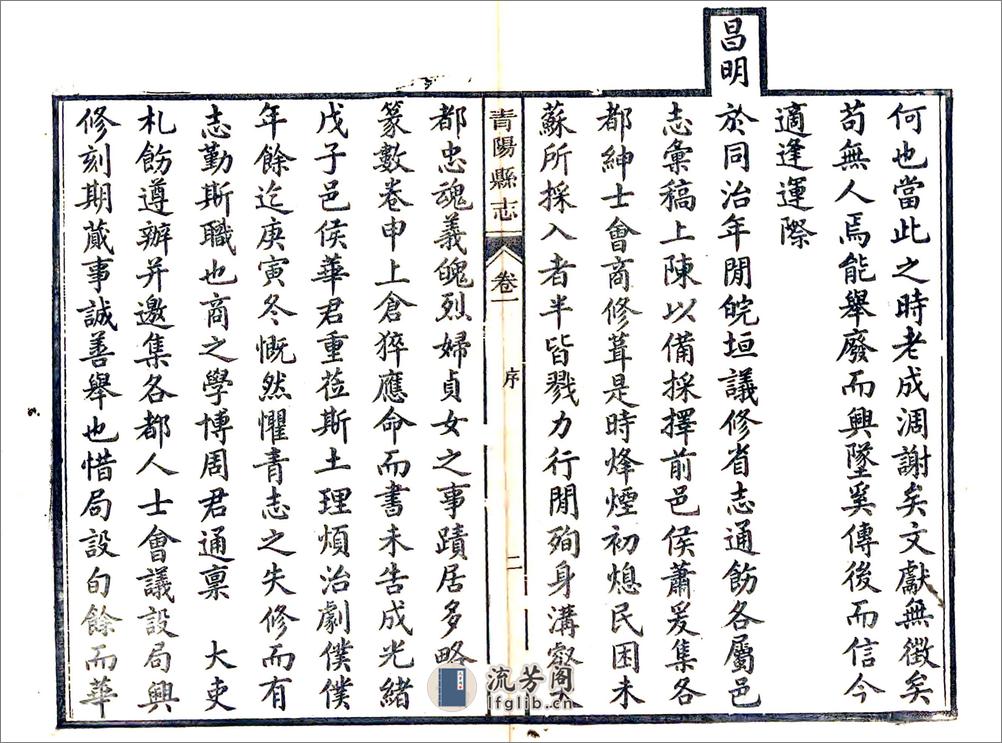 何也當此之時老成凋謝矣文獻無徵矣
苟無人焉能舉廢而興墜奚傳後而信今
適逢運際
昌明
於同治年閒皖垣議修省志通飭各屬邑
志彙稿上陳以備採擇前邑侯蕭爰集各
都紳士會商修葺是時烽煙初熄民困未
蘇所採入者半皆戮力行閒殉身溝壑
青陽縣志
卷一
序
二
都忠魂義魄烈婦貞女之事蹟居多略
篆數卷申上倉猝應命而書未告成光緒
戊子邑侯華君重莅斯土理煩治劇僕僕
年餘迄庚寅冬慨然懼青志之失修而有
志勤斯職也商之學博周君通稟 大吏
札飭遵辦并邀集各都人士會議設局興
修刻期蕆事誠善舉也惜局設旬餘而華
流芳阁
lfglib.cn